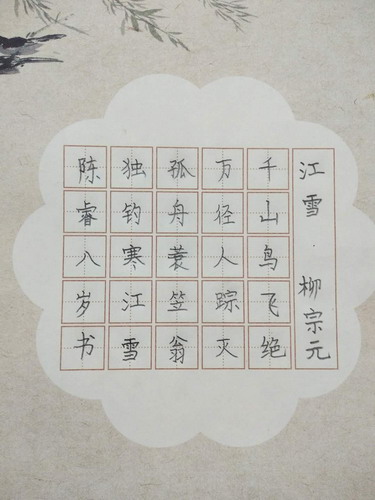 江雪 柳宗元
千山鸟飞绝
万径人踪灭
孤舟蓑笠翁
独钓寒江雪
陈睿八岁书